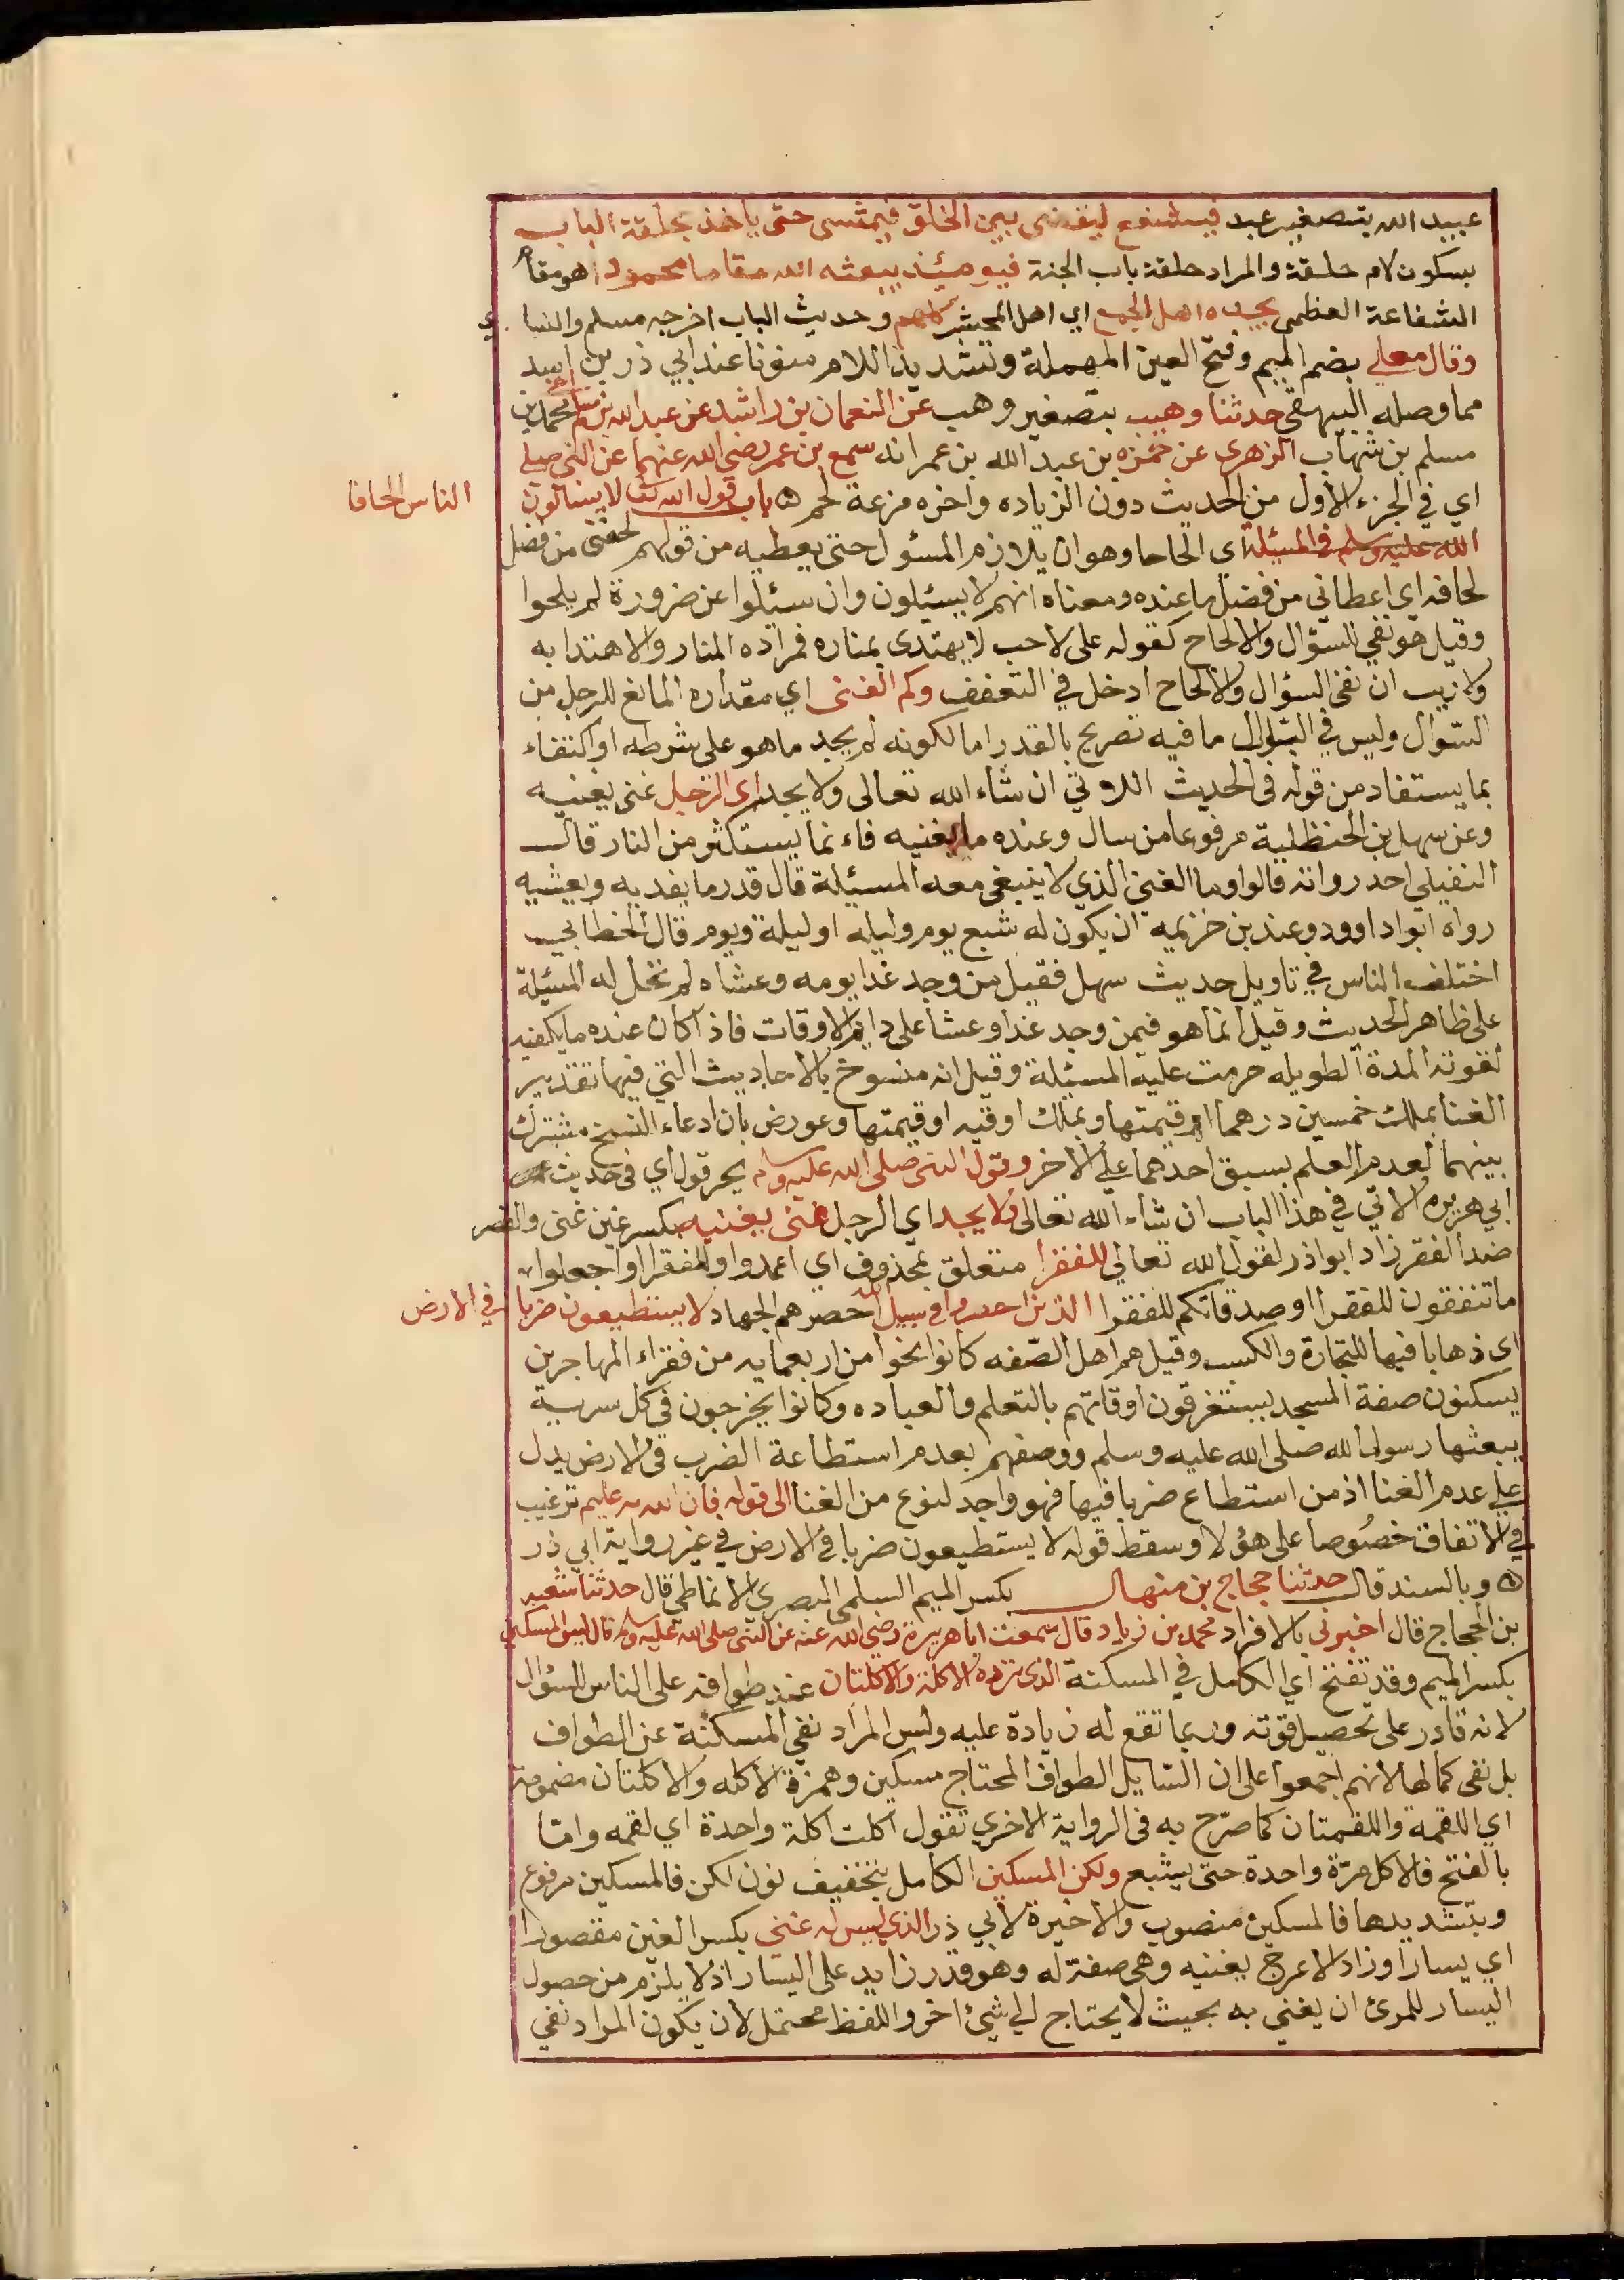 عبيد الله بتصغير عبد فيشفع ليقضى بين الخلق فيمشى حتى ياخذ بحلقة الباب
بسكون لام حلقة والمراد حلقة باب الجنة فيومئذ يبعثه الله مقاما محمودا هو مقام
الشفاعة العظمى يحمده اهل الجمع اي اهل المحشر كلهم وحديث الباب اخرجه مسلم والنساي
وقال معلى بضم الميم وفتح العين المهملة وتشديد اللام منونا عند ابي ذر بن اسد
مما وصله البيهقي حدثنا وهيب بتصغير وهب عن النعمان بن راشد عن عبد الله بن مسلم اخي محمد بن
مسلم بن شهاب الزهري عن حمزه بن عبد الله بن عمر انه سمع بن عمر رضي الله عنهما عن النبي صلى
اي في الجزء الأول من الحديث دون الزياده واخره مزعة لحم ه باب قول الله تعالى لا يسالون الناس الحافا
الله عليه وسلم في المسئلة اى الحاحا وهو ان يلازم المسئول حتى يعطيه من قولهم لحفني من فضل
لحافه اي اعطاني من فضل ما عنده ومعناه انهم لا يسئلون وان سئلوا عن ضرورة لم يلحوا
وقيل هو نفي للسؤال والالحاح كقوله على لاحب لا يهتدى بمناره فمراده المنار والاهتدا به
ولا ريب ان نفى السؤال والالحاح ادخل في التعفف وكم الغنى اي مقداره المانع للرجل من
السّوال وليس في الباب ما فيه تصريح بالقدر اما لكونه لم يجد ما هو على شرطه او اكتفاء
بما يستفاد من قوله فى الحديث الاتي ان شاء الله تعالى ولا يجد اى الرجل غنى يغنيه
وعن سهل بن الحنظلية مرفوعا من سال وعنده ما يغنيه فاء نما يستكثر من النار قال
النفيلي احد رواته قالوا وما الغنى الذي لا ينبغي معه المسئلة قال قدر ما يغديه ويعشيه
رواه ابواد اوود وعند بن خزيمه ان يكون له شبع يوم وليله او ليلة ويوم قال الخطابي
اختلف الناس في تاويل حديث سهل فقيل من وجد غدا يومه وعشاه لم تحل له المسئلة
على ظاهر الحديث وقيل انما هو فيمن وجد غدا وعشا على دايم الاوقات فاذا كان عنده ما يكفيه
لقوته المدة الطويله حرمت عليه المسئلة وقيل انه منسوخ بالاحاديث التي فيها تقدير
الغنا بملك خمسين درهما او قيمتها وبملك اوقيه او قيمتها وعورض بان ادعاء النسخ مشترك
بينهما لعدم العلم بسبق احدهما على الاخر وقول النبي صلى الله عليه وسلم بجر قول اي فى حديث
ابي هريره الاتي في هذا الباب ان شاء الله تعالى ولا يجد اي الرجل غنى يغنيه بكسر غين غنى والقصر
ضد الفقر زاد ابواذر لقول الله تعالى للفقرا متعلق بمحذوف اي اعمدوا للفقرا او اجعلوا
ما تنفقون للفقرا او صدقاتكم للفقرا الذين احصروا في سبيل الله حصرهم الجهاد لا يستطيعون ضربا في الارض
اى ذهابا فيها للتجارة والكسب وقيل هم اهل الصّفه كانوا نحوا من اربعمايه من فقراء المهاجرين
يسكنون صفة المسجد يستغرقون اوقاتهم بالتعلم والعباده وكانوا يخرجون في كل سرية
يبعثها رسول الله صلى الله عليه وسلم ووصفهم بعدم استطاعة الضرب فى الارض يدل
على عدم الغنا اذ من استطاع ضربا فيها فهو واجد لنوع من الغنا الى قوله فان الله به عليم ترغيب
في الانفاق خصُوصا على هؤلا وسقط قوله لا يستطيعون ضربا في الارض في غير رواية ابي ذر
ه وبالسند قال حدثنا حجاج بن منهال بكسر الميم السلمي البصري الانماطي قال حدثنا شعبه
بن الحجاج قال اخبرني بالافراد محمد بن زياد قال سمعت ابا هريرة رضي الله عنه عن النبي صلى الله عليه وسلم قال ليس المسكين
بكسر الميم وقد تفتح اي الكامل في المسكنة الذى ترده الاكلة والاكلتان عند طوافه على الناس للسؤال
لانه قادر على تحصيل قوته وربما تقع له زيادة عليه وليس المراد نفي المسكنة عن الطواف
بل نفى كمالها لانهم اجمعوا على ان السّايل الطواف المحتاج مسكين وهمزة الاكله والاكلتان مضمومة
اي اللقمة واللقمتان كما صرّح به فى الرواية الاخرى تقول اكلت اكلة واحدة اي لقمه وامّا
بالفتح فالاكل مرّة واحدة حتى يشبع ولكن المسكين الكامل بتخفيف نون لكن فالمسكين مرفوع
وبتشديدها فالمسكين منصوب والاخيرة لابي ذر الذي ليس له غنى بكسر الغين مقصورا
اي يسارا وزاد الاعرج يغنيه وهي صفة له وهو قدر زايد على اليسار اذ لا يلزم من حصول
اليسار للمرئ ان يغني به بحيث لا يحتاج الى شيئ اخر واللفظ محتمل لان يكون المراد نفي